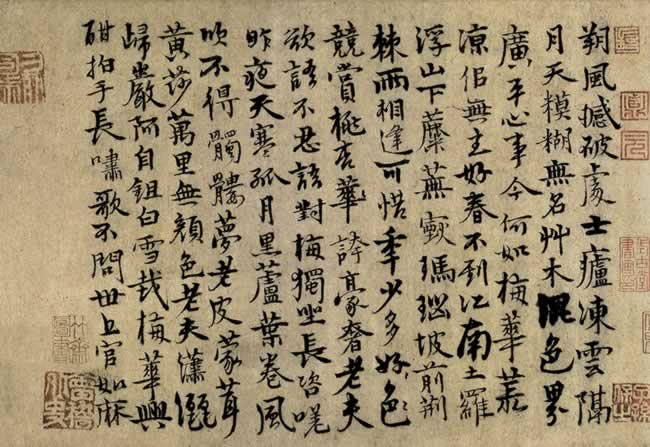 朔風撼破處士廬凍雲隔
月天糢糊無名艸木混色界
廣平心事今何如梅華荒
凉佀無主好春不到江南土羅
浮山下蘼蕪煙瑪瑙坡前荆
棘雨相逢可惜年少多好色
競賞桃杏華誇豪奢老夫
欲語不忍語對梅獨坐長咨嗟
昨夜天寒孤月黑蘆葉卷風
吹不得髑髏夢老皮蒙茸
黃莎萬里無顏色老夫瀟灑
歸巖阿自鉏白雪栽梅華興
酣拍手長嘯歌不問世上官如麻